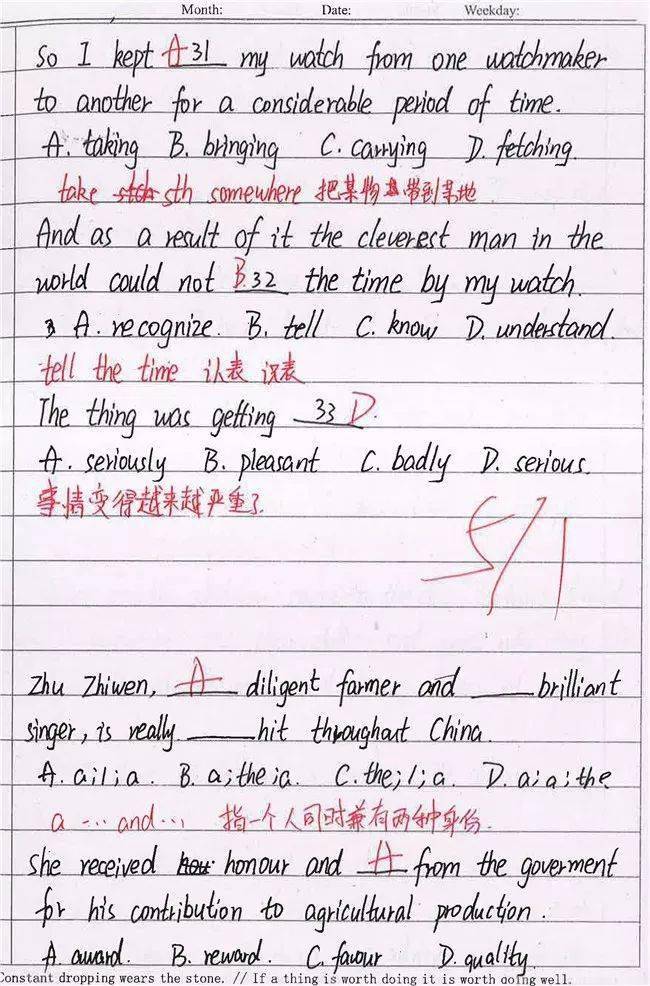 Month: Date: Weekday:
So I kept A 31 my watch from one watchmaker
to another for a considerable period of time.
A. taking B. bringing C. carrying D. fetching.
take sth somewhere 把某物带到某地
And as a result of it the cleverest man in the
world could not B.32 the time by my watch.
A. recognize. B. tell C. know D. understand.
tell the time 认表 识表
The thing was getting 33 D.
A. seriously B. pleasant C. badly D. serious.
事情变得越来越严重了.
5/1
Zhu Zhiwen, A diligent farmer and ____ brilliant
singer, is really ____ hit throughout China.
A. a;l;a. B. a;the;a. C. the;l;a. D. a;a;the
a ... and ... 指一个人同时兼有两种身份.
She received honour and A from the goverment
for his contribution to agricultural production.
A. award. B. reward. C. favour D. quality.
Constant dropping wears the stone. // If a thing is worth doing it is worth doing well.